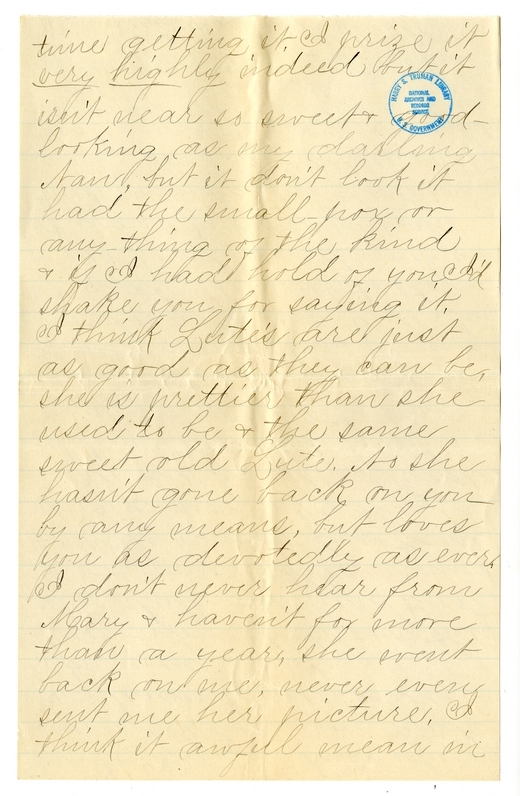 time getting it. I prize it
very highly indeed but it
HARRY S. TRUMAN LIBRARY
NATIONAL
ARCHIVES AND
RECORDS
SERVICE
U.S. GOVERNMENT
isn't near so sweet & good-
looking as my darling
Nan, but it don't look it
had the small-pox or
any-thing of the kind
& if I had hold of you I'd
shake you for saying it.
I think Lute's are just
as good as they can be,
she is prettier than she
used to be & the same
sweet old Lute. No she
hasn't gone back on you
by any means, but loves
you as devotedly as ever.
I don't never hear from
Mary & haven't for more
than a year, she went
back on me, never even
sent me her picture. I
think it awful mean in